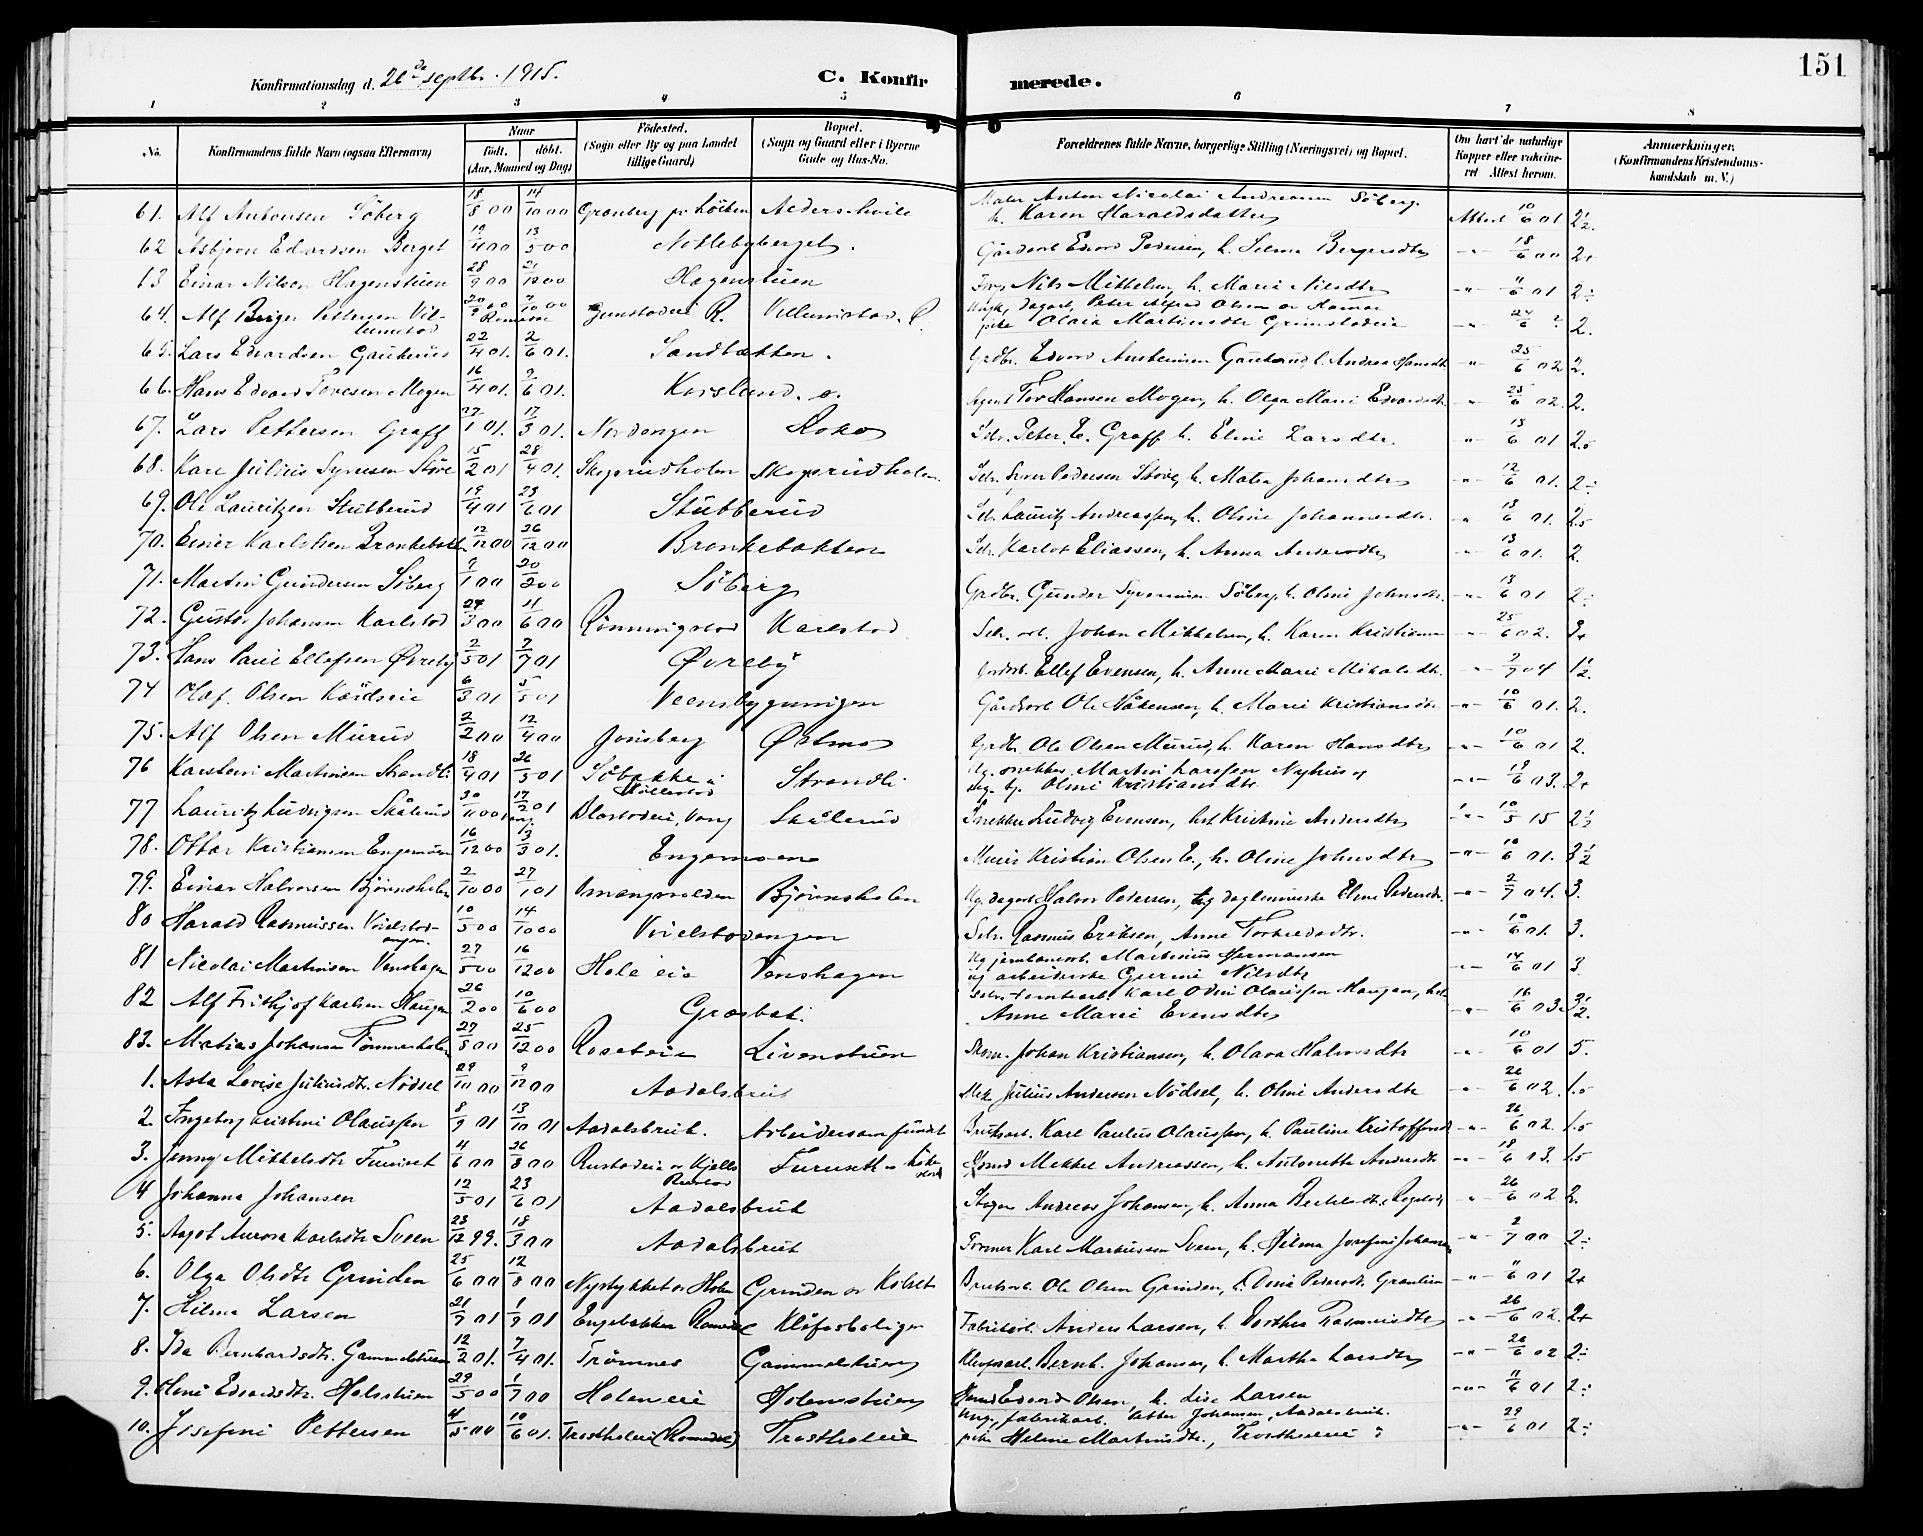 151
Konfirmationsdag d. 26de septbr. 1915.
C. Konfirmerede.
1 2 3 4 5 6 7 8
No.
Konfirmandens fulde Navn (ogsaa Efternavn)
Naar
født. døbt.
(Aar, Maaned og Dag)
Fødested.
(Sogn eller By og paa Landet tillige Gaard)
Bopæl.
(Sogn og Gaard eller i Byerne Gade og Hus-No.
Forældrenes fulde Navne, borgerlige Stilling (Næringsvei) og Bopæl.
Om havt de naturlige Kopper eller vaccineret Attest herom.
Anmærkninger,
(Konfirmandens Kristendomskundskab m. V.)
61. Alf Antonsen Söberg 18/8 00 14/10 00 Alderslivile Maler Anton Nicolai Andreassen Söberg, h. Karen Haraldsdatter Attest 10/6 01 2½.
62 Asbjørn Edvardsen Berget 19/4 00 13/5 00 Nottebyberget. Gårdarb Edvard Pedersen, h. Selma Bergersdtr -"- 18/6 00 2+
63 Einar Nilsen Hagenstuen 28/9 00 21/12 00 Hagenstuen Nils Mikkelsen, h. Marie Nilsdtr -"- 11/6 01 2÷
64. Alf Birger Pettersen Villumstad 20/9 00 7/10 00 Romedal Villumstad. R. Ungk. dagarb. Peter Alfred Olsen av Hamar pike Olaia Martinsdtr Grimstadeie -"- 24/6 2.
65. Lars Edvardsen Gaukerud 22/4 01. 2/6 01. Sandbakken. Grdbr. Edvard Austensen Gaukerud, h. Andrea Hansdtr -"- 25/6 02 2.
66. Hans Edvard Toresen Mogen 16/4 01. 9/6 01. Korslund. ø. Agent Tor Hansen Mogen, h. Olga Marie Edvardsdtr. -"- 25/6 02. 2.
67. Lars Pettersen Graff 27/1 01. 17/3 01. Nordengen Roko Selv. Peter E. Graff h. Eline Larsdtr. -"- 13/6 01 2.
68. Kare Julius Syversen Støve 15/2 01 28/4 01. Skogsrudholen Skogsrudholen Selv. Syver Pedersen Støve, h. Mathea Johansdtr -"- 12/6 01. 2÷
69. Ole Lauritzen Stubberud 19/4 01 23/6 01 Stubberud Selv. Lauritz Andreassen, h. Oline Johannesdtr. -"- 13/6 01. 2
70. Einer Karlotsen Bronkebakken 12/12 00 26/12 00 Bronkebakken Selv. Karlot Eliassen, h. Anna Andersdtr -"- 13/6 01. 2.
71. Martin Gundersen Söberg 9/1 00 20/2 00 Söberg Grdbr. Gunder Syversen Söberg, h. Oline Johnsdtr. -"- 13/6 01 2÷
72. Gustav Johansen Karlstad 24/3 00 11/6 00 Rønningstad Karlstad Selv. arb. Johan Mikkelsen, h. Karen Kristiansen -"- 25/6 02. 3+
73. Hans Paul Ellefsen Øvreby 2/5 01 7/7 01 Øvreby Ellef Evensen, h. Anne Marie Mikalsdtr. -"- 2/7 04 1½.
74 Olaf Olsen Kordseie 6/3 01 5/5 01 Veensbygningen Gårdarb Ole Håkensen, h. Marie Kristiansdtr -"- 10/6 01. 2.
75. Alf Olsen Murud 2/2 00 12/4 00 Jonsberg Østmo Grdbr. Ole Olsen Murud, h. Karen Hansdtr -"- 10/6 01 2.
76 Karsten Martinsen Strandli 18/4 01 26/5 01 Söbakke i Strandli Ug. snekker Martin Larssen Nyhus og Ug. tj. Oline Kristiansdtr. -"- 19/6 03. 2+
77 Lauritz Ludvigsen Skålerud 30/11 00 17/2 01 Blæstadeie, Vang Skålerud Snekker Ludvig Evensen, hst Kristine Andersdtr -"- 10/5 15 2
78. Ottar Kristiansen Engemoen 16/12 00 1/3 01. Engemoen Murer Kristian Olsen E., h. Oline Johnsdtr -"- 10/6 01. 3½
79. Einar Halvorsen Bjørnsholen 2/10 00 27/1 01 Bjørnsholen Ug. dagarb Halvor Petersen, og daglønnerske Eline Pedersdtr. -"- 2/7 04. 3.
80 Harald Rasmussen Vivelstadengen. 10/5 00 14/10 00 Vivelstadengen Selv. Rasmus Eriksen, Anne Torkildsdtr. -"- 10/6 01. 3.
81 Nicolai Martinsen Venshagen 27/5 00 16/12 00 Hole eie Venshagen Ug jernbanearb. Martinius Hermansen og arbeiderske Gurine Nilsdtr -"- 14/6 01 3.
82 Alf Frithjof Karlsen Haugen 26/2 00 10/6 00 Græsbak. Selv. tomtearb. Karl Odin Olaussen Haugen, Anne Marie Evensdtr -"- 16/6 03 3½.
83. Matias Johansen Tømmerholen 27/8 00 25/12 00 Roseteie Livenstuen Skom. Johan Kristiansen, h. Olava Halvorsdtr -"- 10/6 01 5.
1. Asta Lovise Juliusdtr. Nödsel 29/10 00 9/12 00 Aadalsbruk Mek Julius Andersen Nödsel, h. Oline Andersdtr -"- 26/6 02. 1.
2. Ingeborg Kristine Olaussen 8/9 01 13/10 01 Aadalsbruk. Arbeidersamfundet Bruksarb. Karl Paulus Olaussen, h. Pauline Kristoffersd -"- 26/6 02. 1.
3. Jenny Mikkelsdtr Furuset 4/6 00 26/8 00 Rustadeie av Kjells Rustad Furuseth Mikkel Andreassen, h. Antonette Andersdtr -"- 18/6 03. 1.5
4 Johanna Johansen 12/5 01 23/6 01 Aadalsbruk Andreas Johansen, h. Anna -"- 26/6 02 2.
5. Aagot Aurora Karlsdtr Sveen 23/12 99. 18/3 00 Aadalsbruk Former Karl Markussen Sveen, h. Hilma Josefine Johansen -"- 2/7 00 2÷
6. Olga Olsdtr Grinden 25/6 00 12/8 00 Nystykket av Holen Grinden av Kolset Bruksarb. Ole Olsen Grinden, h. Oline Pedersdtr. -"- 11/6 01 2+
7. Hilma Larsen 21/7 01 1/9 01 Engebakken Romedal Klöfasboligen Fabrikarb. Anders Larsen, h. Dorthea Rasmusdtr -"- 26/6 02. 2+
8. Ida Bernhardsdtr. Gammelstuen 12/2 01. 7/4 01. Trømnes Gammelstuen Bernh. Johansen, h. Martha Larsdtr -"- 26/6 02 2÷
9. Edvardsdtr. Holmstuen 29/5 00 1/7 00 Holen eie Holmstuen Edvard Olsen, h. Lise Larsen -"- 11/6 01 2÷
10. Josefine Pettersen 4/5 00 10/6 01. Trostholeie (Romedal) Trostholeie Ung. fabrikarb. Petter Johansen, Aadalsbruk. pike Helene Martinusdtr., Trostholeie -"- 29/6 01 2÷